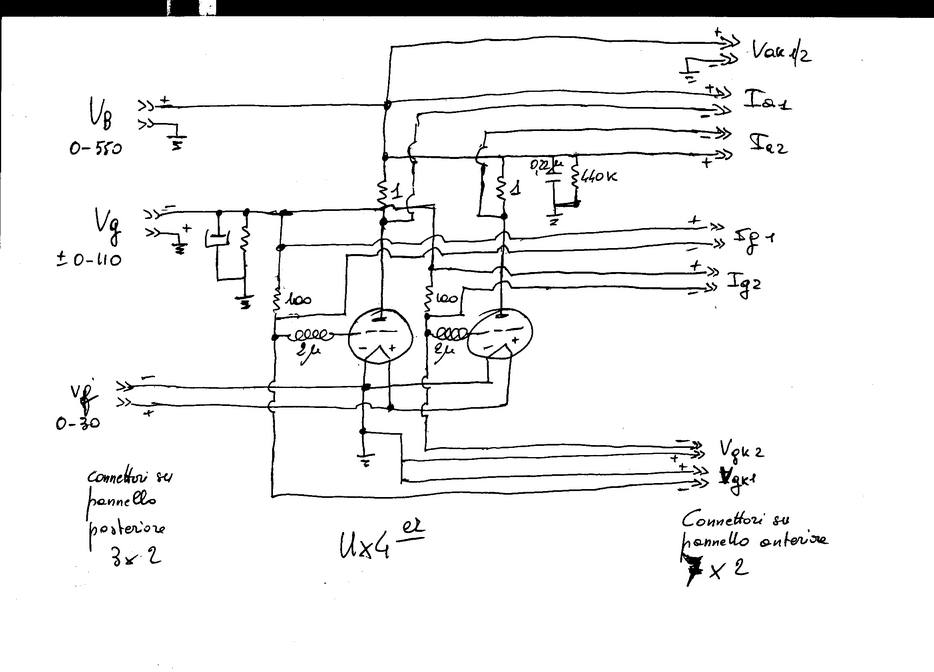 + Vak1/2
-
VB + + Ia1
- -
0-550 - Ia2
+
0,22µ 440K
1 1
Vg - + Ig1
+ -
± 0-110 + Ig2
-
100 100
2µ - + 2µ - +
Vf -
+
0-30
- Vgk2
+
+ Vgk1
-
Connettori su
pannello
posteriore
3 x 2
Ux4
Connettori su
pannello anteriore
7 x 2